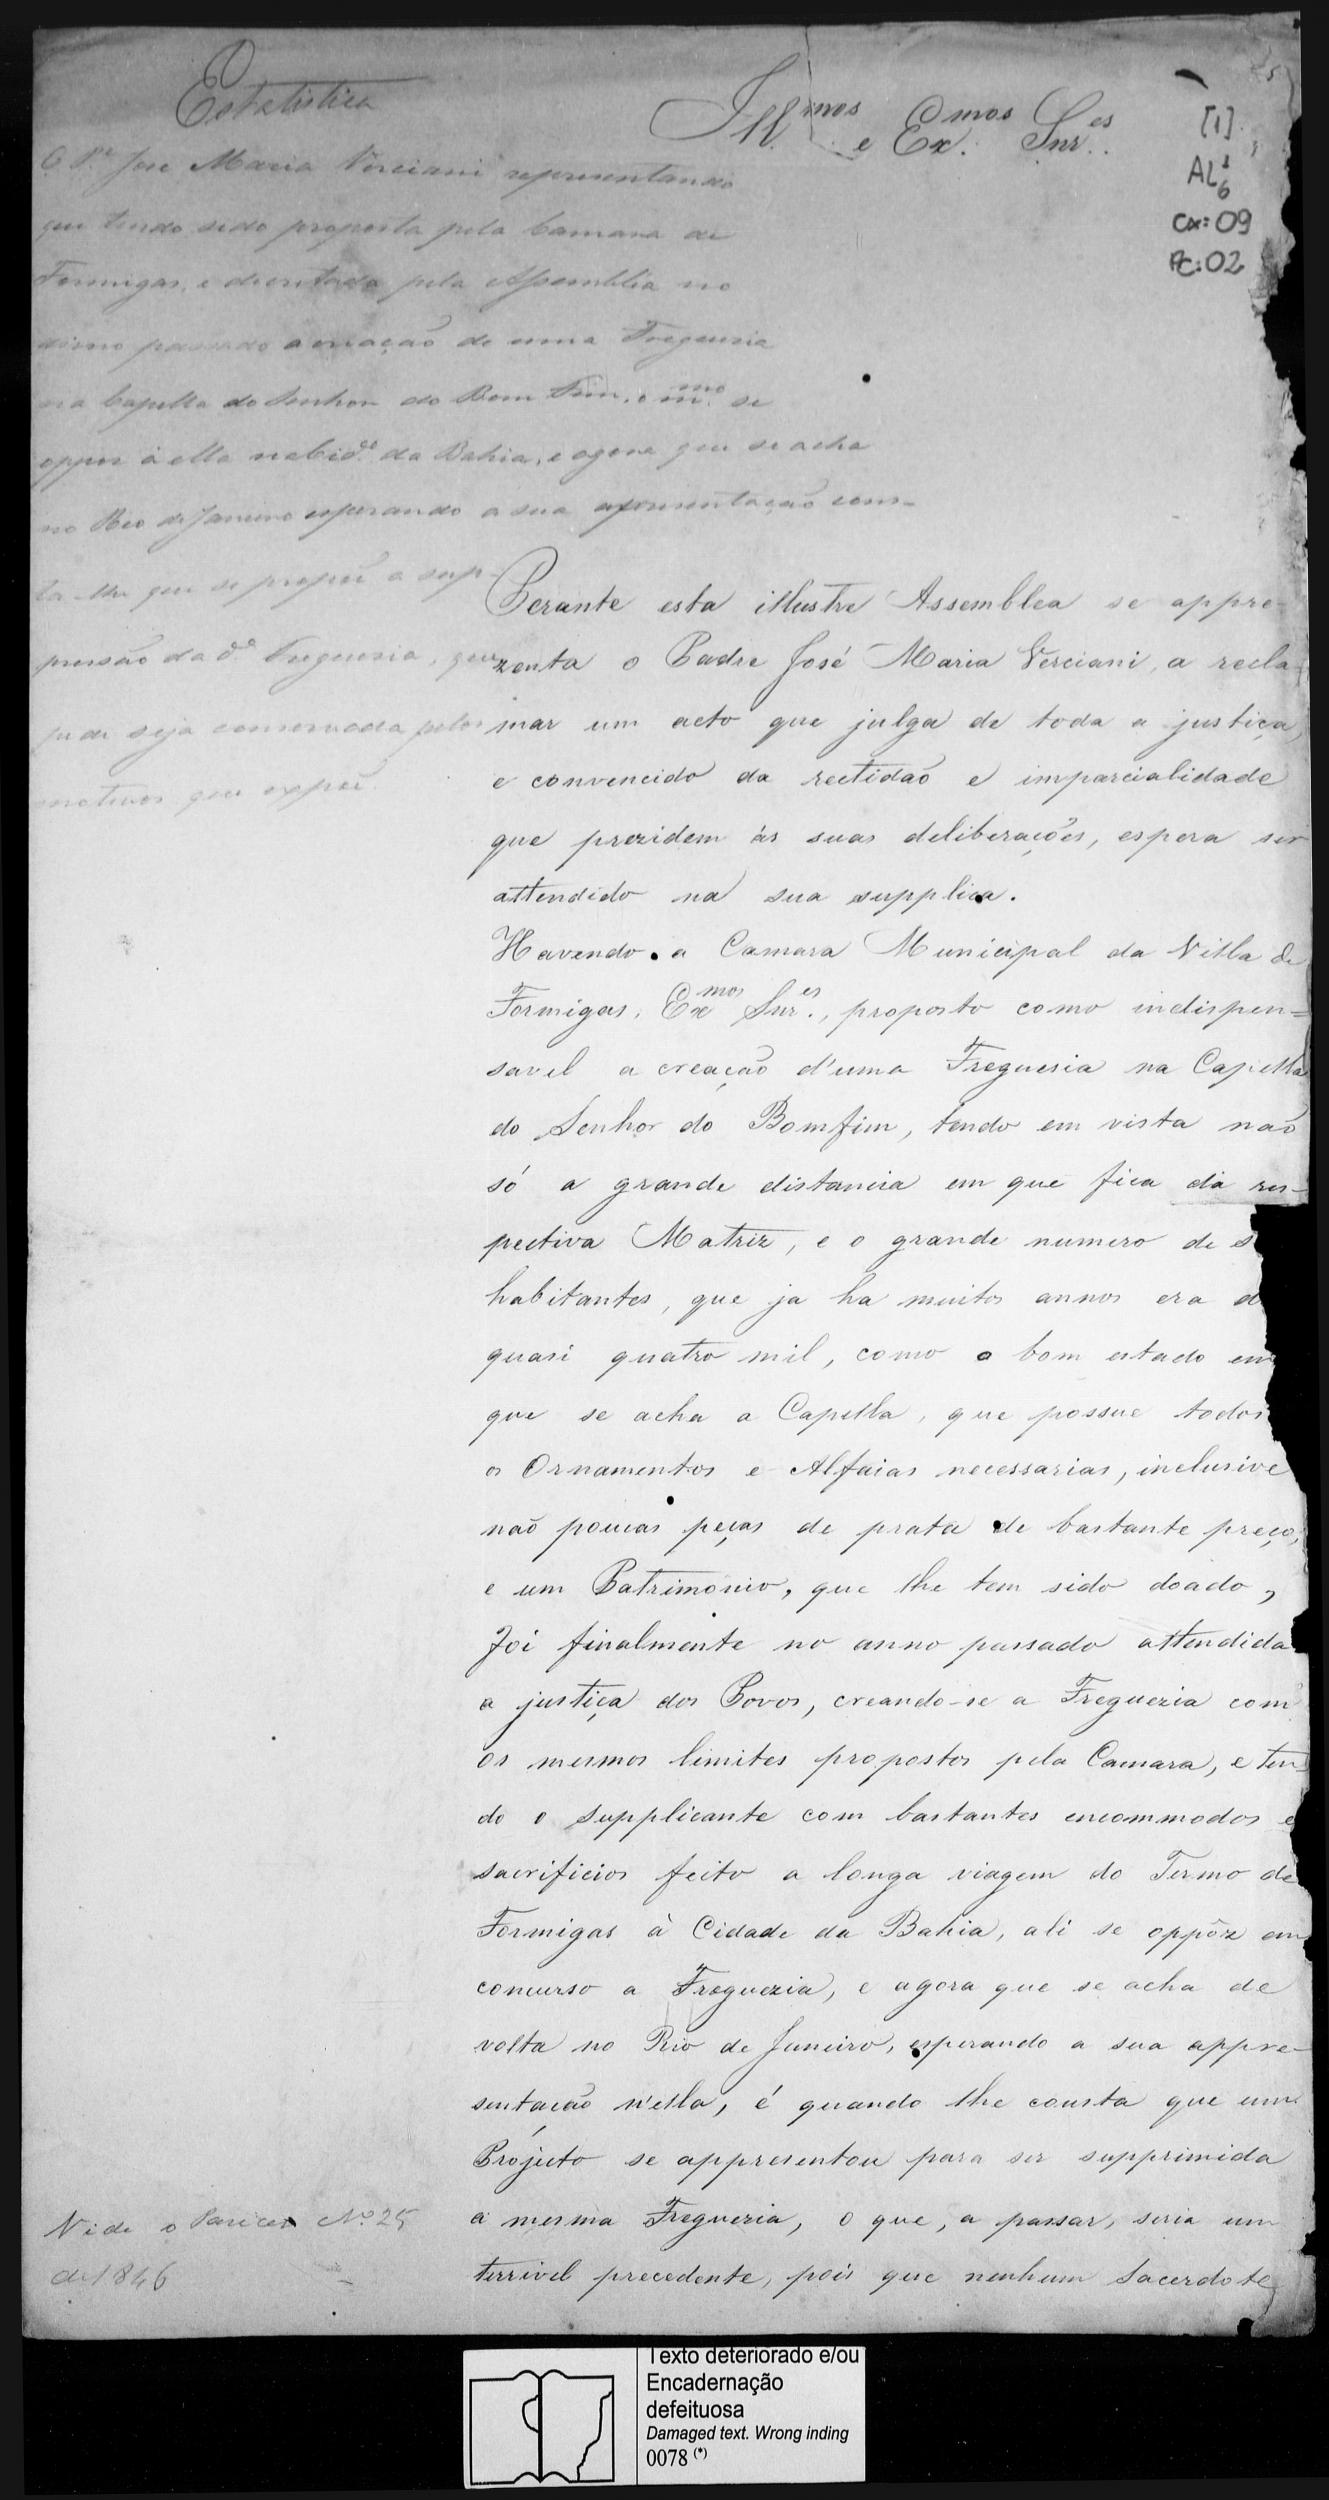 Estatistica
Ill.mos e Ex.mos Snr.es
[1]
AL1 6
Cx: 09
PC: 02
O P.e Jose Maria Verciani representando
que tendo sido proposta pela Camara de
Formigas, e decretada pela Assemblia no
anno passado a creação de uma Freguesia
na Capella do Senhor do Bom Fim, o m.mo se
oppoz á ella na Cid.e da Bahia, e agora que se acha
no Rio de Janeiro esperando a sua apresentação cons-
ta-lhe que se propoz a sup-
pressão da d.a Freguesia, que
pede seja conservada pelos
motivos que expõe.
Perante esta illustre Assemblea se appre-
zenta o Padre José Maria Verciani, a recla-
mar um acto que julga de toda a justiça,
e convencido da rectidão e imparcialidade
que prezidem ás suas deliberações, espera ser
attendido na sua supplica.
Havendo a Camara Municipal da Villa de
Formigas, Exmos Snr.es, proposto como indispen=
savel a creação d'uma Freguesia na Capella
do Senhor do Bomfim, tendo em vista não
só a grande distancia em que fica da res-
pectiva Matriz, e o grande numero de s
habitantes, que ja ha muitos annos era d
quasi quatro mil, como o bom estado em
que se acha a Capella, que possue todos
os Ornamentos e Alfaias necessarias, inclusive
não poucas peças de prata de bastante preço,
e um Patrimonio, que lhe tem sido doado,
foi finalmente no anno passado attendida
a justiça dos Povos, creando-se a Freguezia com
os mesmos limites propostos pela Camara, e ten
do o supplicante com bastantes encommodos e
sacrificios feito a longa viagem do Termo de
Formigas à Cidade da Bahia, ali se oppôz em
concurso a Freguezia, e agora que se acha de
volta no Rio de Janeiro, esperando a sua appre-
sentação n'ella, é quando lhe consta que um
Projecto se appresentou para ser supprimida
a mesma Freguezia, o que, a passar, seria um
terrivel precedente, pois que nenhum Sacerdote
Vide o Parecer Nº 25
de 1846
Texto deteriorado e/ou
Encadernação
defeituosa
Damaged text. Wrong inding
0078 (*)